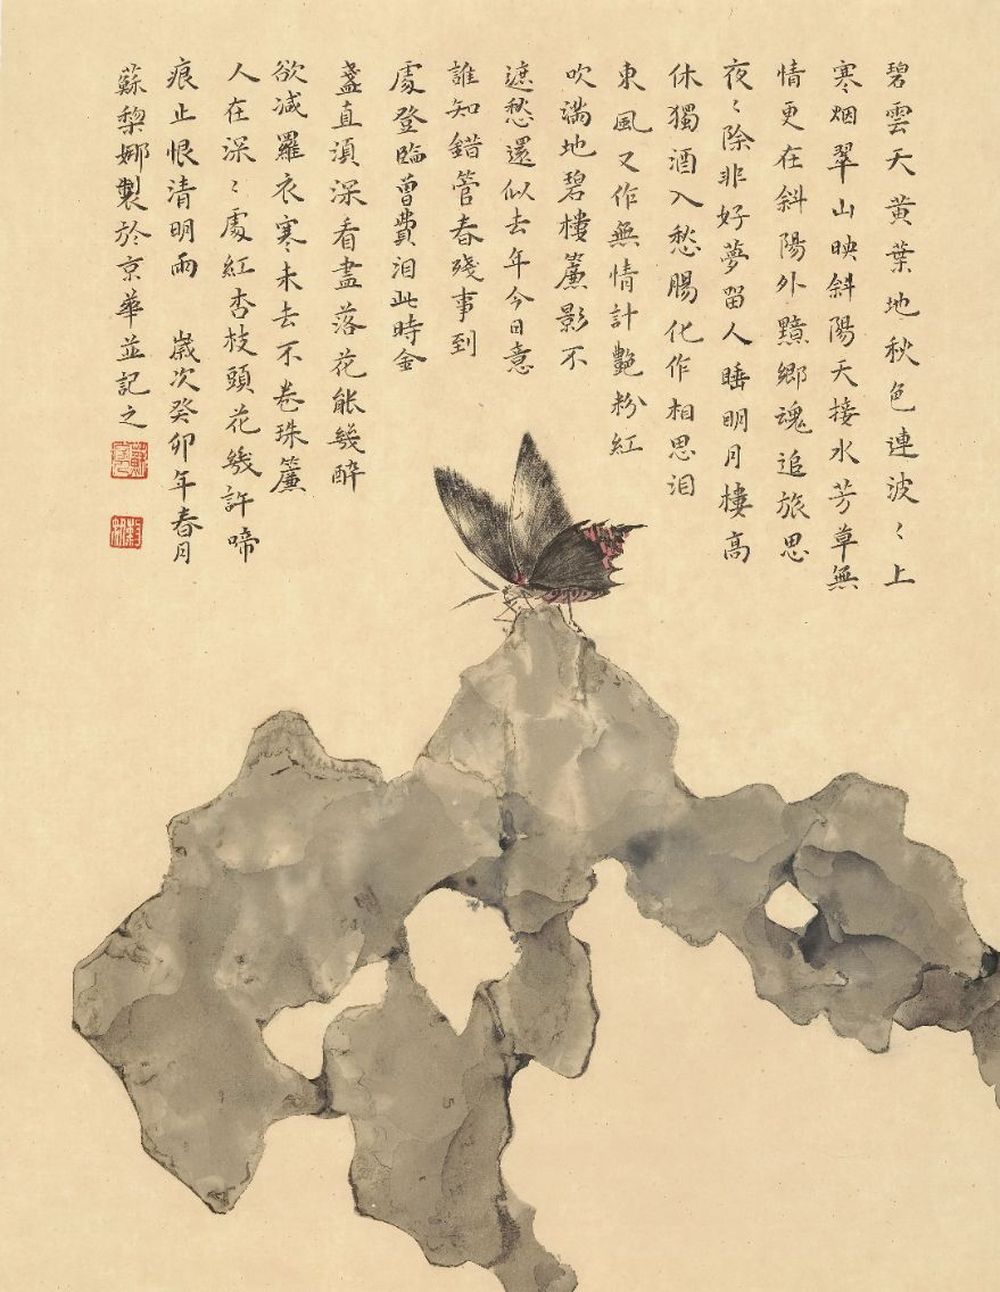 碧雲天黃葉地秋色連波〻上
寒烟翠山映斜陽天接水芳草無
情更在斜陽外黯鄉魂追旅思
夜〻除非好夢留人睡明月樓高
休獨酒入愁腸化作相思泪
東風又作無情計艷粉紅
吹滿地碧樓簾影不
遮愁還似去年今日意
誰知錯管春殘事到
處登臨曾費泪此時金
盞直須深看盡落花能幾醉
欲減羅衣寒未去不卷珠簾
人在深〻處紅杏枝頭花幾許啼
痕止恨清明雨 歲次癸卯年春月
蘇黎娜製於京華並記之